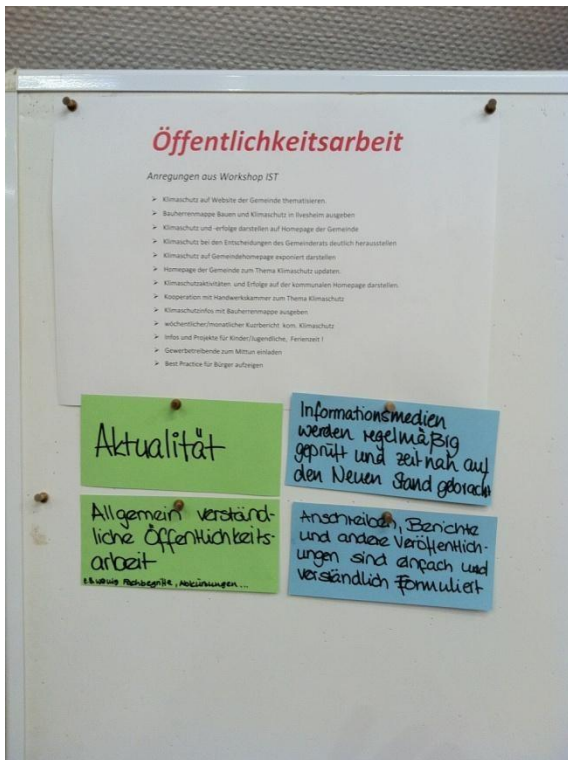 Öffentlichkeitsarbeit
Anregungen aus Workshop IST
➢ Klimaschutz auf Website der Gemeinde thematisieren.
➢ Bauherrenmappe Bauen und Klimaschutz in Ilvesheim ausgeben
➢ Klimaschutz und -erfolge darstellen auf Homepage der Gemeinde
➢ Klimaschutz bei den Entscheidungen des Gemeinderats deutlich herausstellen
➢ Klimaschutz auf Gemeindehomepage exponiert darstellen
➢ Homepage der Gemeinde zum Thema Klimaschutz updaten.
➢ Klimaschutzaktivitäten und Erfolge auf der kommunalen Homepage darstellen.
➢ Kooperation mit Handwerkskammer zum Thema Klimaschutz
➢ Klimaschutzinfos mit Bauherrenmappe ausgeben
➢ wöchentlicher/monatlicher Kurzbericht kom. Klimaschutz
➢ Infos und Projekte für Kinder/Jugendliche, Ferienzeit !
➢ Gewerbetreibende zum Mittun einladen
➢ Best Practice für Bürger aufzeigen
Aktualität
Informationsmedien
werden regelmäßig
geprüft und zeitnah auf
den Neuen Stand gebracht
Allgemein verständ-
liche Öffentlichkeits-
arbeit
z.B. wenig Fachbegriffe, Abkürzungen...
Anschreiben, Berichte
und andere Veröffentlich-
ungen sind einfach und
verständlich Formuliert